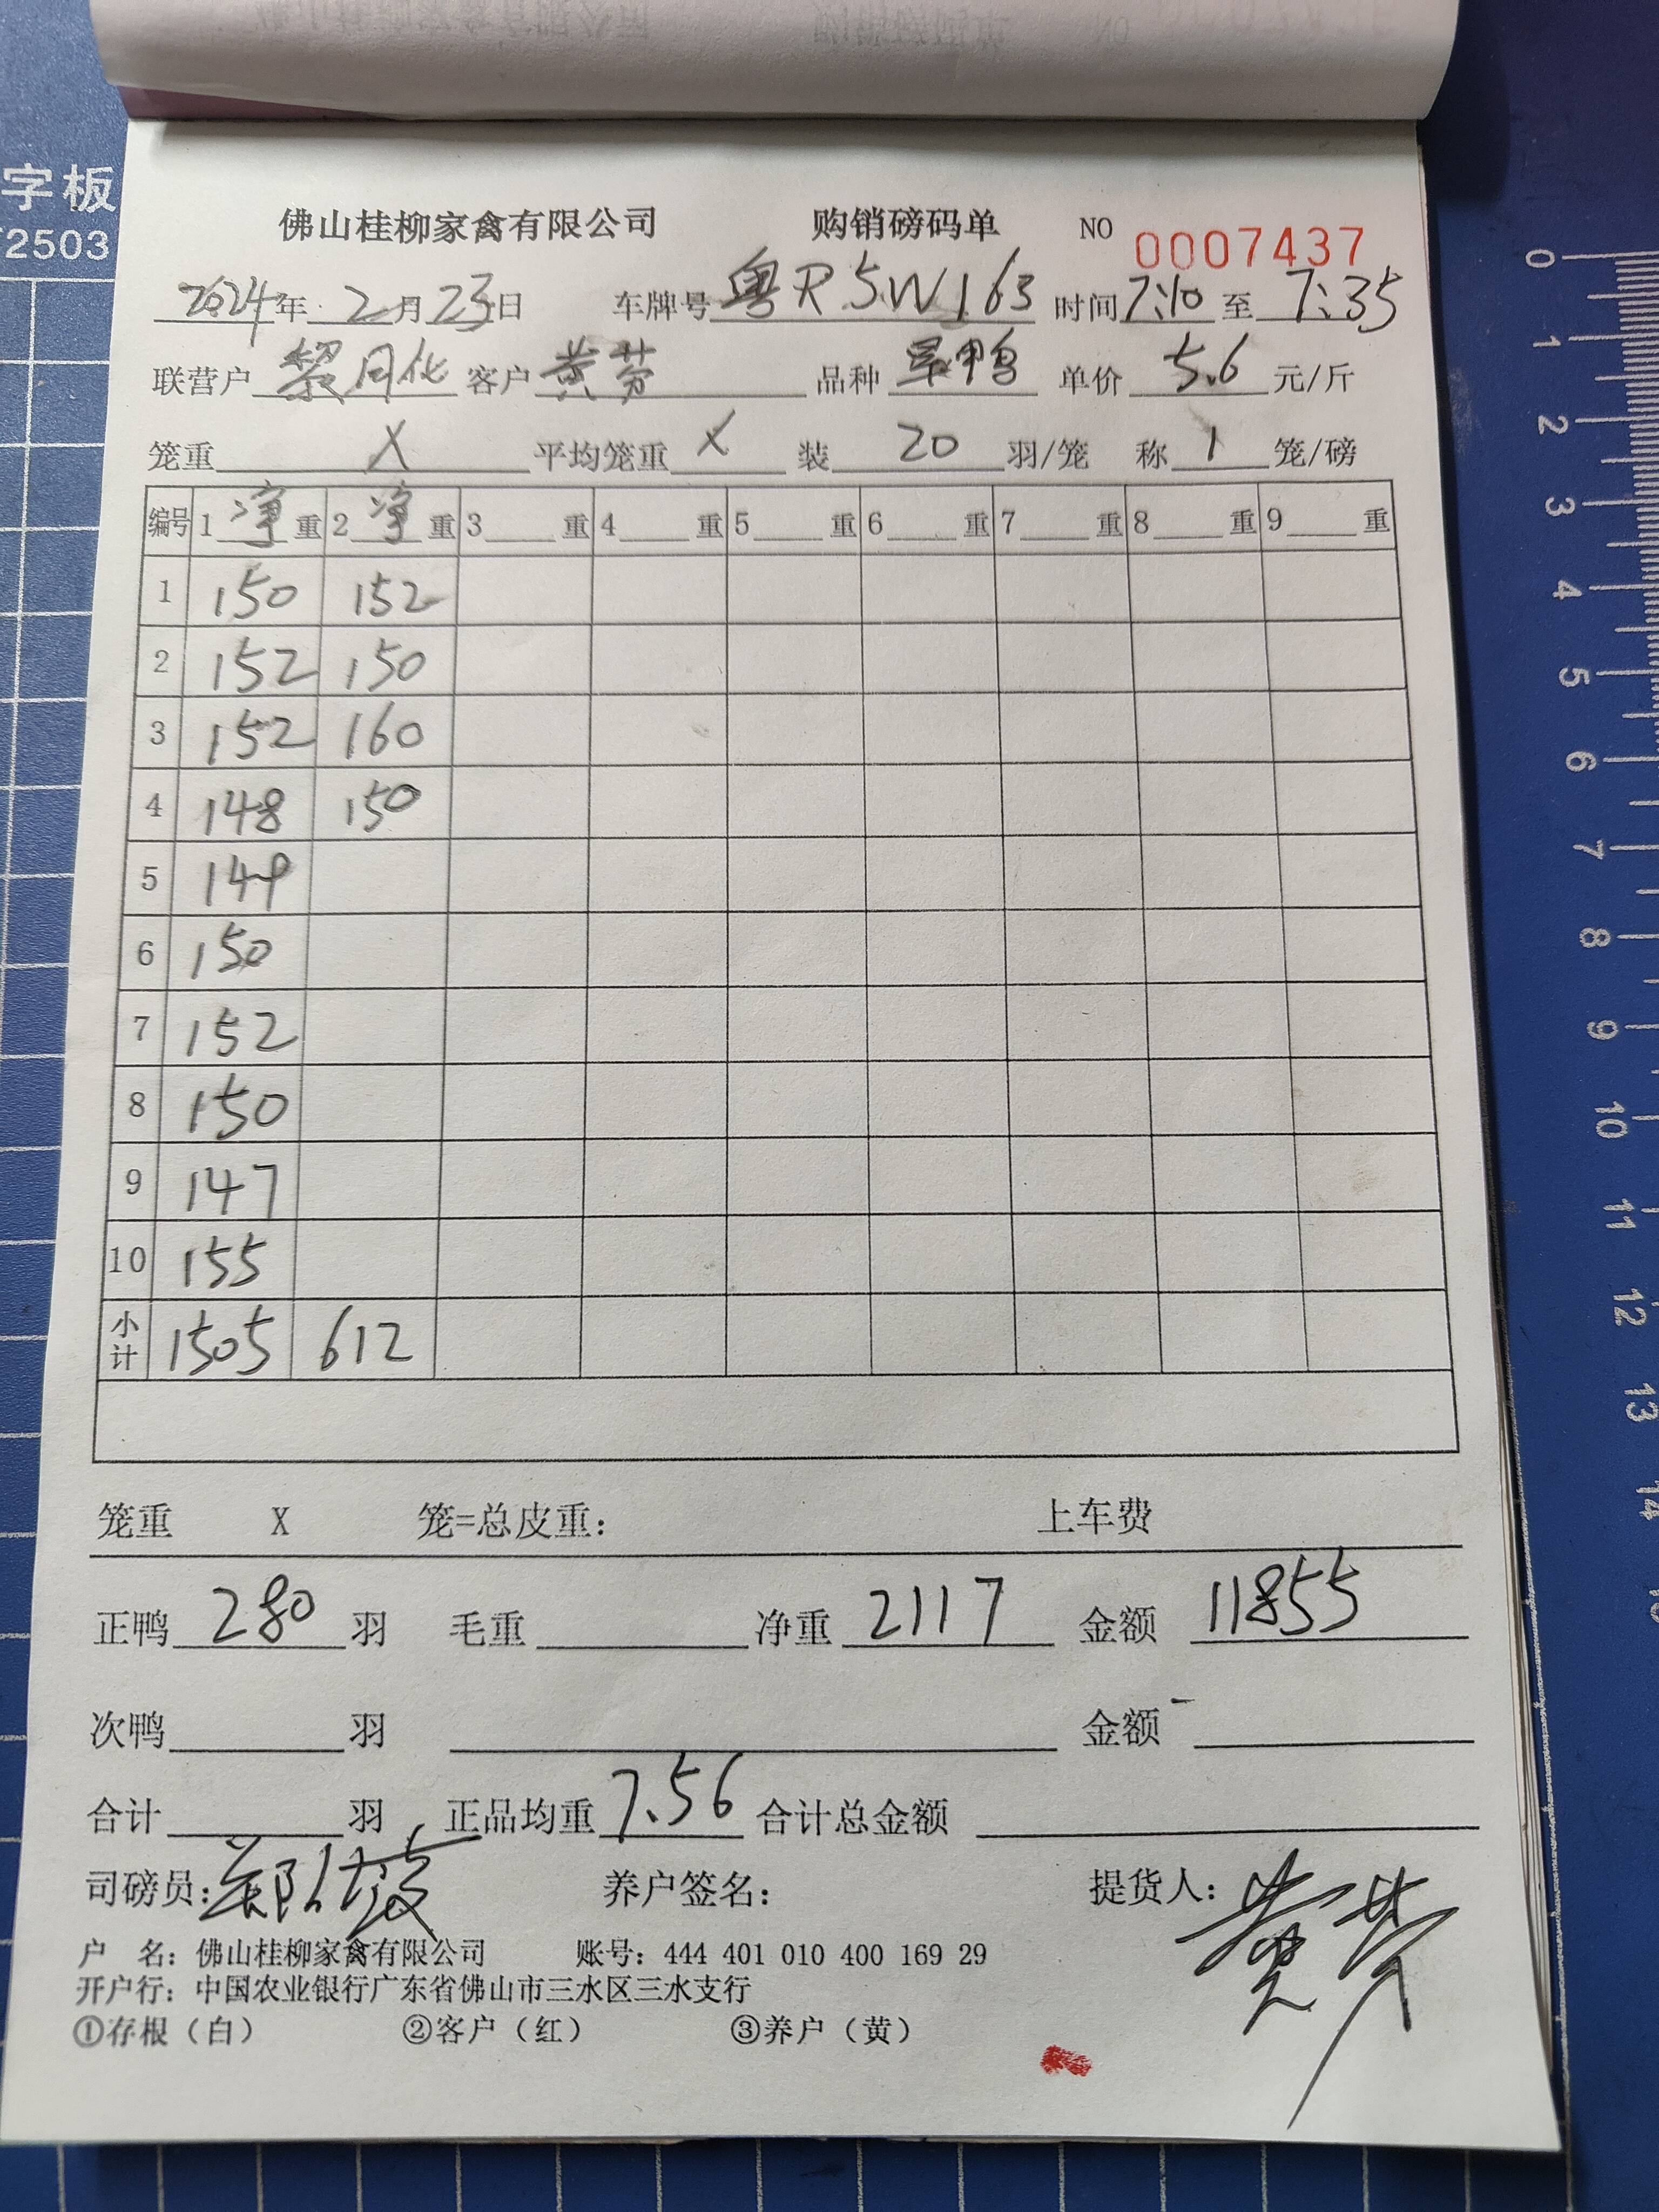 字板
2503
佛山桂柳家禽有限公司 购销磅码单 NO 0007437
2024年 2月 23日 车牌号 粤R5W163 时间 7:10 至 7:35
联营户 黎月化 客户 黄芬 品种 旱鸭 单价 5.6 元/斤
笼重 X 平均笼重 X 装 20 羽/笼 称 1 笼/磅
编号 1 净 重 2 净 重 3 重 4 重 5 重 6 重 7 重 8 重 9 重
1 150 152
2 152 150
3 152 160
4 148 150
5 149
6 150
7 152
8 150
9 147
10 155
小计 1505 612
笼重 X 笼=总皮重: 上车费
正鸭 280 羽 毛重 净重 2117 金额 11855
次鸭 羽 金额
合计 羽 正品均重 7.56 合计总金额
司磅员: 养户签名: 提货人: 黄芬
户 名: 佛山桂柳家禽有限公司 账号: 444 401 010 400 169 29
开户行: 中国农业银行广东省佛山市三水区三水支行
①存根(白) ②客户(红) ③养户(黄)
0
1
2
3
4
5
6
7
8
9
10
11
12
13
14